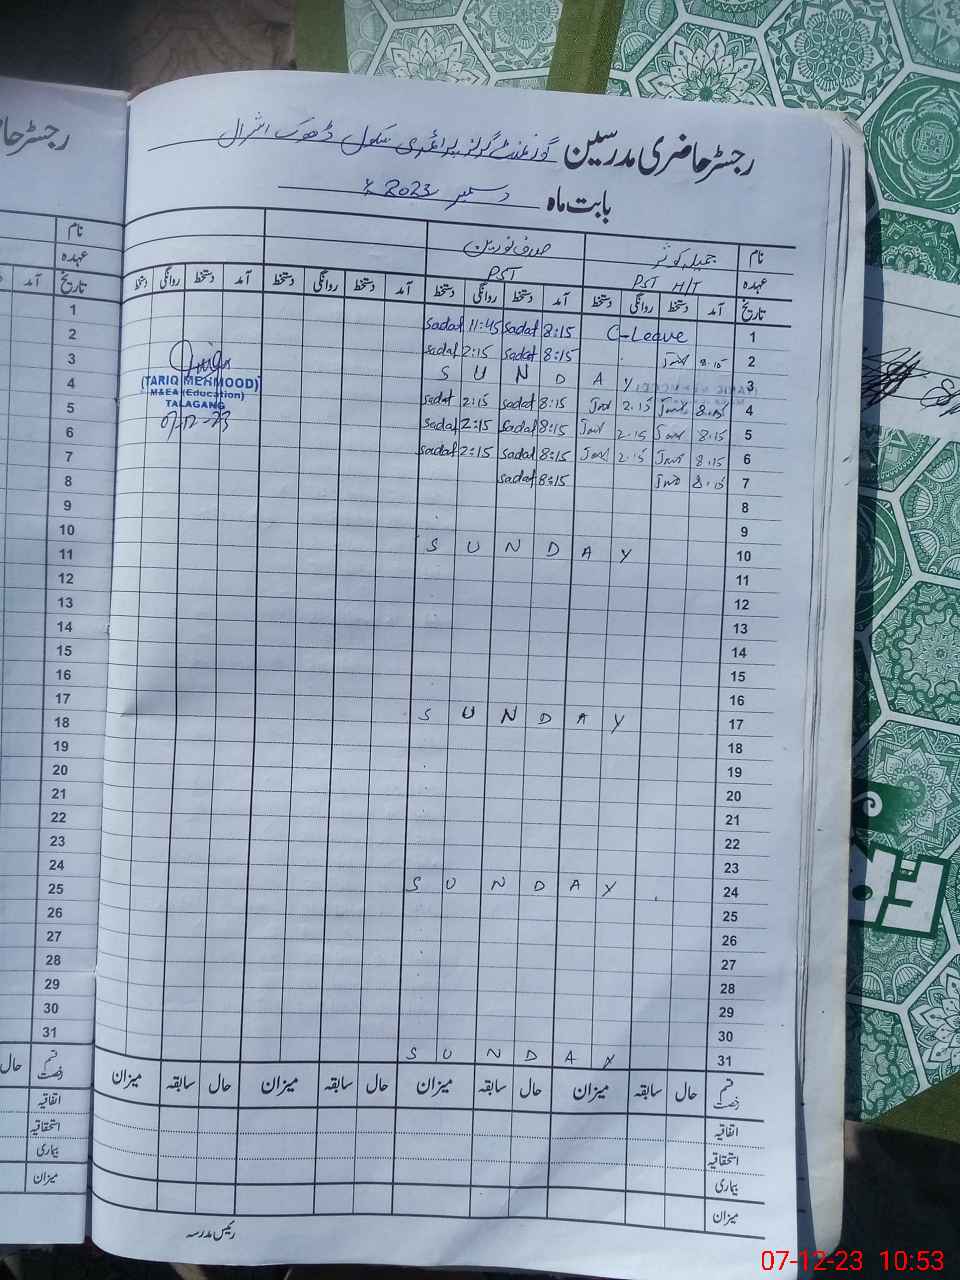 رجسٹر حاضری مدرسین گورنمنٹ گرلز پرائمری سکول ڈھوک اشرال
بابت ماہ دسمبر 2023ء
نام جمیلہ کوثر صدف نورین
عہدہ PST H/T PST
تاریخ آمد دستخط روانگی دستخط آمد دستخط روانگی دستخط آمد دستخط روانگی دستخط آمد دستخط روانگی دستخط
1 C-Leave 8:15 sadaf 11:45 sadaf
2 8:15 8:15 sadaf 2:15 sadaf
3 S U N D A Y
4 8:15 2:15 8:15 sadaf 2:15 sadaf
5 8:15 2:15 8:15 sadaf 2:15 sadaf
6 8:15 2:15 8:15 sadaf 2:15 sadaf
7 8:15 8:15 sadaf
8
9
10 S U N D A Y
11
12
13
14
15
16
17 S U N D A Y
18
19
20
21
22
23
24 S U N D A Y
25
26
27
28
29
30
31 S U N D A Y
قسم رخصت حال سابقہ میزان حال سابقہ میزان حال سابقہ میزان حال سابقہ میزان
اتفاقیہ
استحقاقیہ
بیماری
میزان
رئیس مدرسہ
(TARIQ MEHMOOD)
M&EA (Education)
TALAGANG
07-12-23
رجسٹر حا
نام
عہدہ
تاریخ آمد
1
2
3
4
5
6
7
8
9
10
11
12
13
14
15
16
17
18
19
20
21
22
23
24
25
26
27
28
29
30
31
قسم رخصت حال
اتفاقیہ
استحقاقیہ
بیماری
میزان
07-12-23 10:53